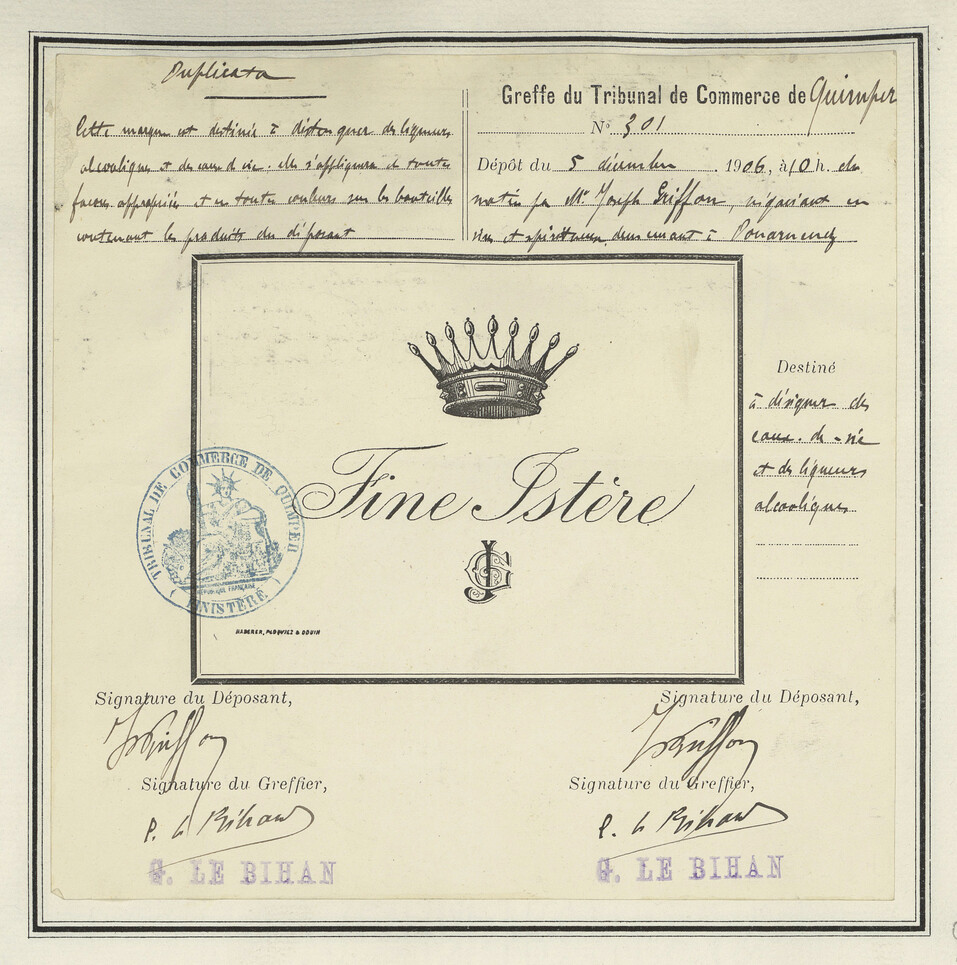 Duplicata
Cette marque est destinée à distinguer des liqueurs
alcooliques et des eaux de vie. elle s'appliquera de toutes
façons appropriées et en toutes couleurs sur les bouteilles
contenant les produits du déposant
Greffe du Tribunal de Commerce de Quimper
N° 301
Dépôt du 5 décembre 1906, à 10 h. du
matin par Mr. Joseph Griffon, négociant en
vins et spiritueux, demeurant à Douarnenez
Fine Istère
JG
TRIBUNAL DE COMMERCE DE QUIMPER
RÉPUBLIQUE FRANÇAISE
( FINISTÈRE )
Destiné
à désigner des
eaux-de-vie
et des liqueurs
alcooliques
Signature du Déposant,
Griffon
Signature du Greffier,
G. LE BIHAN
Signature du Déposant,
Griffon
Signature du Greffier,
G. LE BIHAN